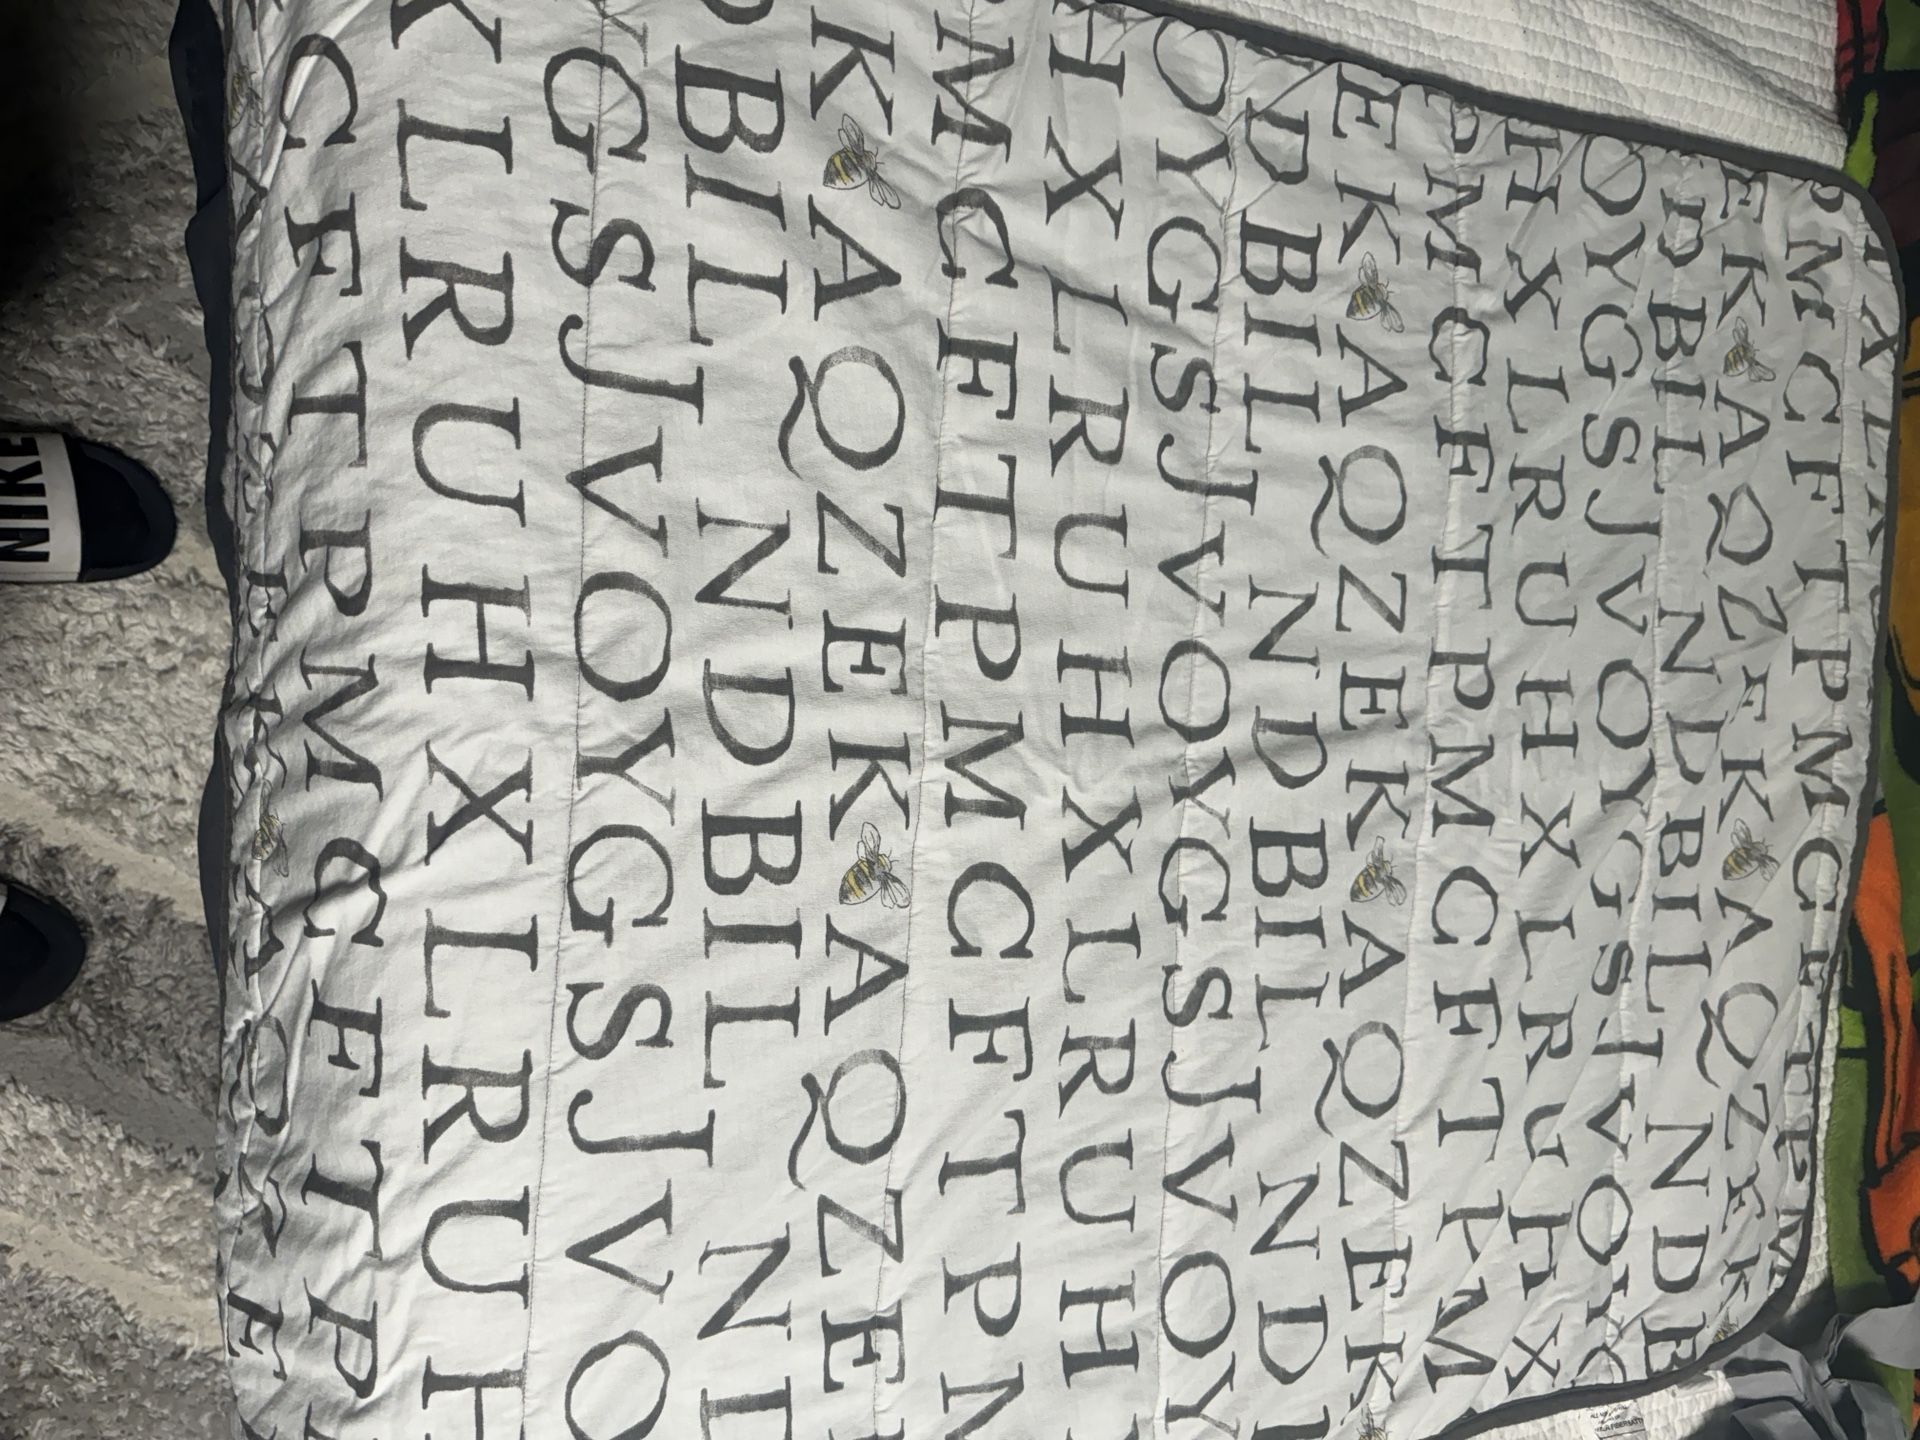 HXLR
PMCFTPMCFTPM
EKAQZEKAQZEK
DBILNDBILNDB
OYGSJVOYGSJVOYG
HXLRUHXLRUHX
PMCFTPMCFTPM
EKAQZEKAQZEK
DBILNDBILND
OYGSJVOYGSJVOY
HXLRUHXLRUH
MCFTPMCFTPM
KAQZEKAQZE
DBILNDBILND
YGSJVOYGSJVO
XLRUHXLRUH
CFTPMCFTP
AQZEKAQZE
NIKE